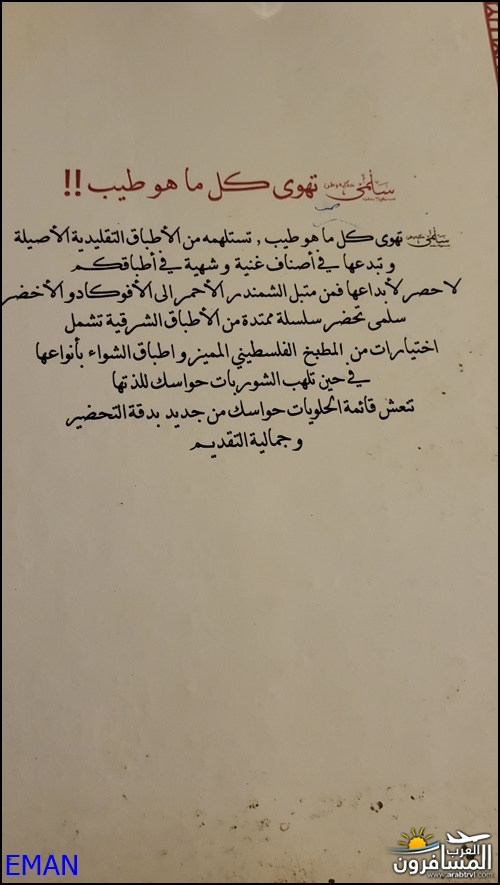 سلمى تهوى كل ما هو طيب !!
سلمى تهوى كل ما هو طيب , تستلهمه من الأطباق التقليدية الأصيلة
و تبدعها في أصناف غنية و شهية في أطباقكم
لا حصر لأبداعها فمن متبل الشمندر الأحمر الى الأفوكادو الأخضر
سلمى تحضر سلسلة ممتدة من الأطباق الشرقية تشمل
اختيارات من المطبخ الفلسطيني المميز و اطباق الشواء بأنواعها
في حين تلهب الشوربات حواسك للذتها
تنعش قائمة الحلويات حواسك من جديد بدقة التحضير
و جمالية التقديم
EMAN
العرب
المسافرون
www.arabtrvl.com